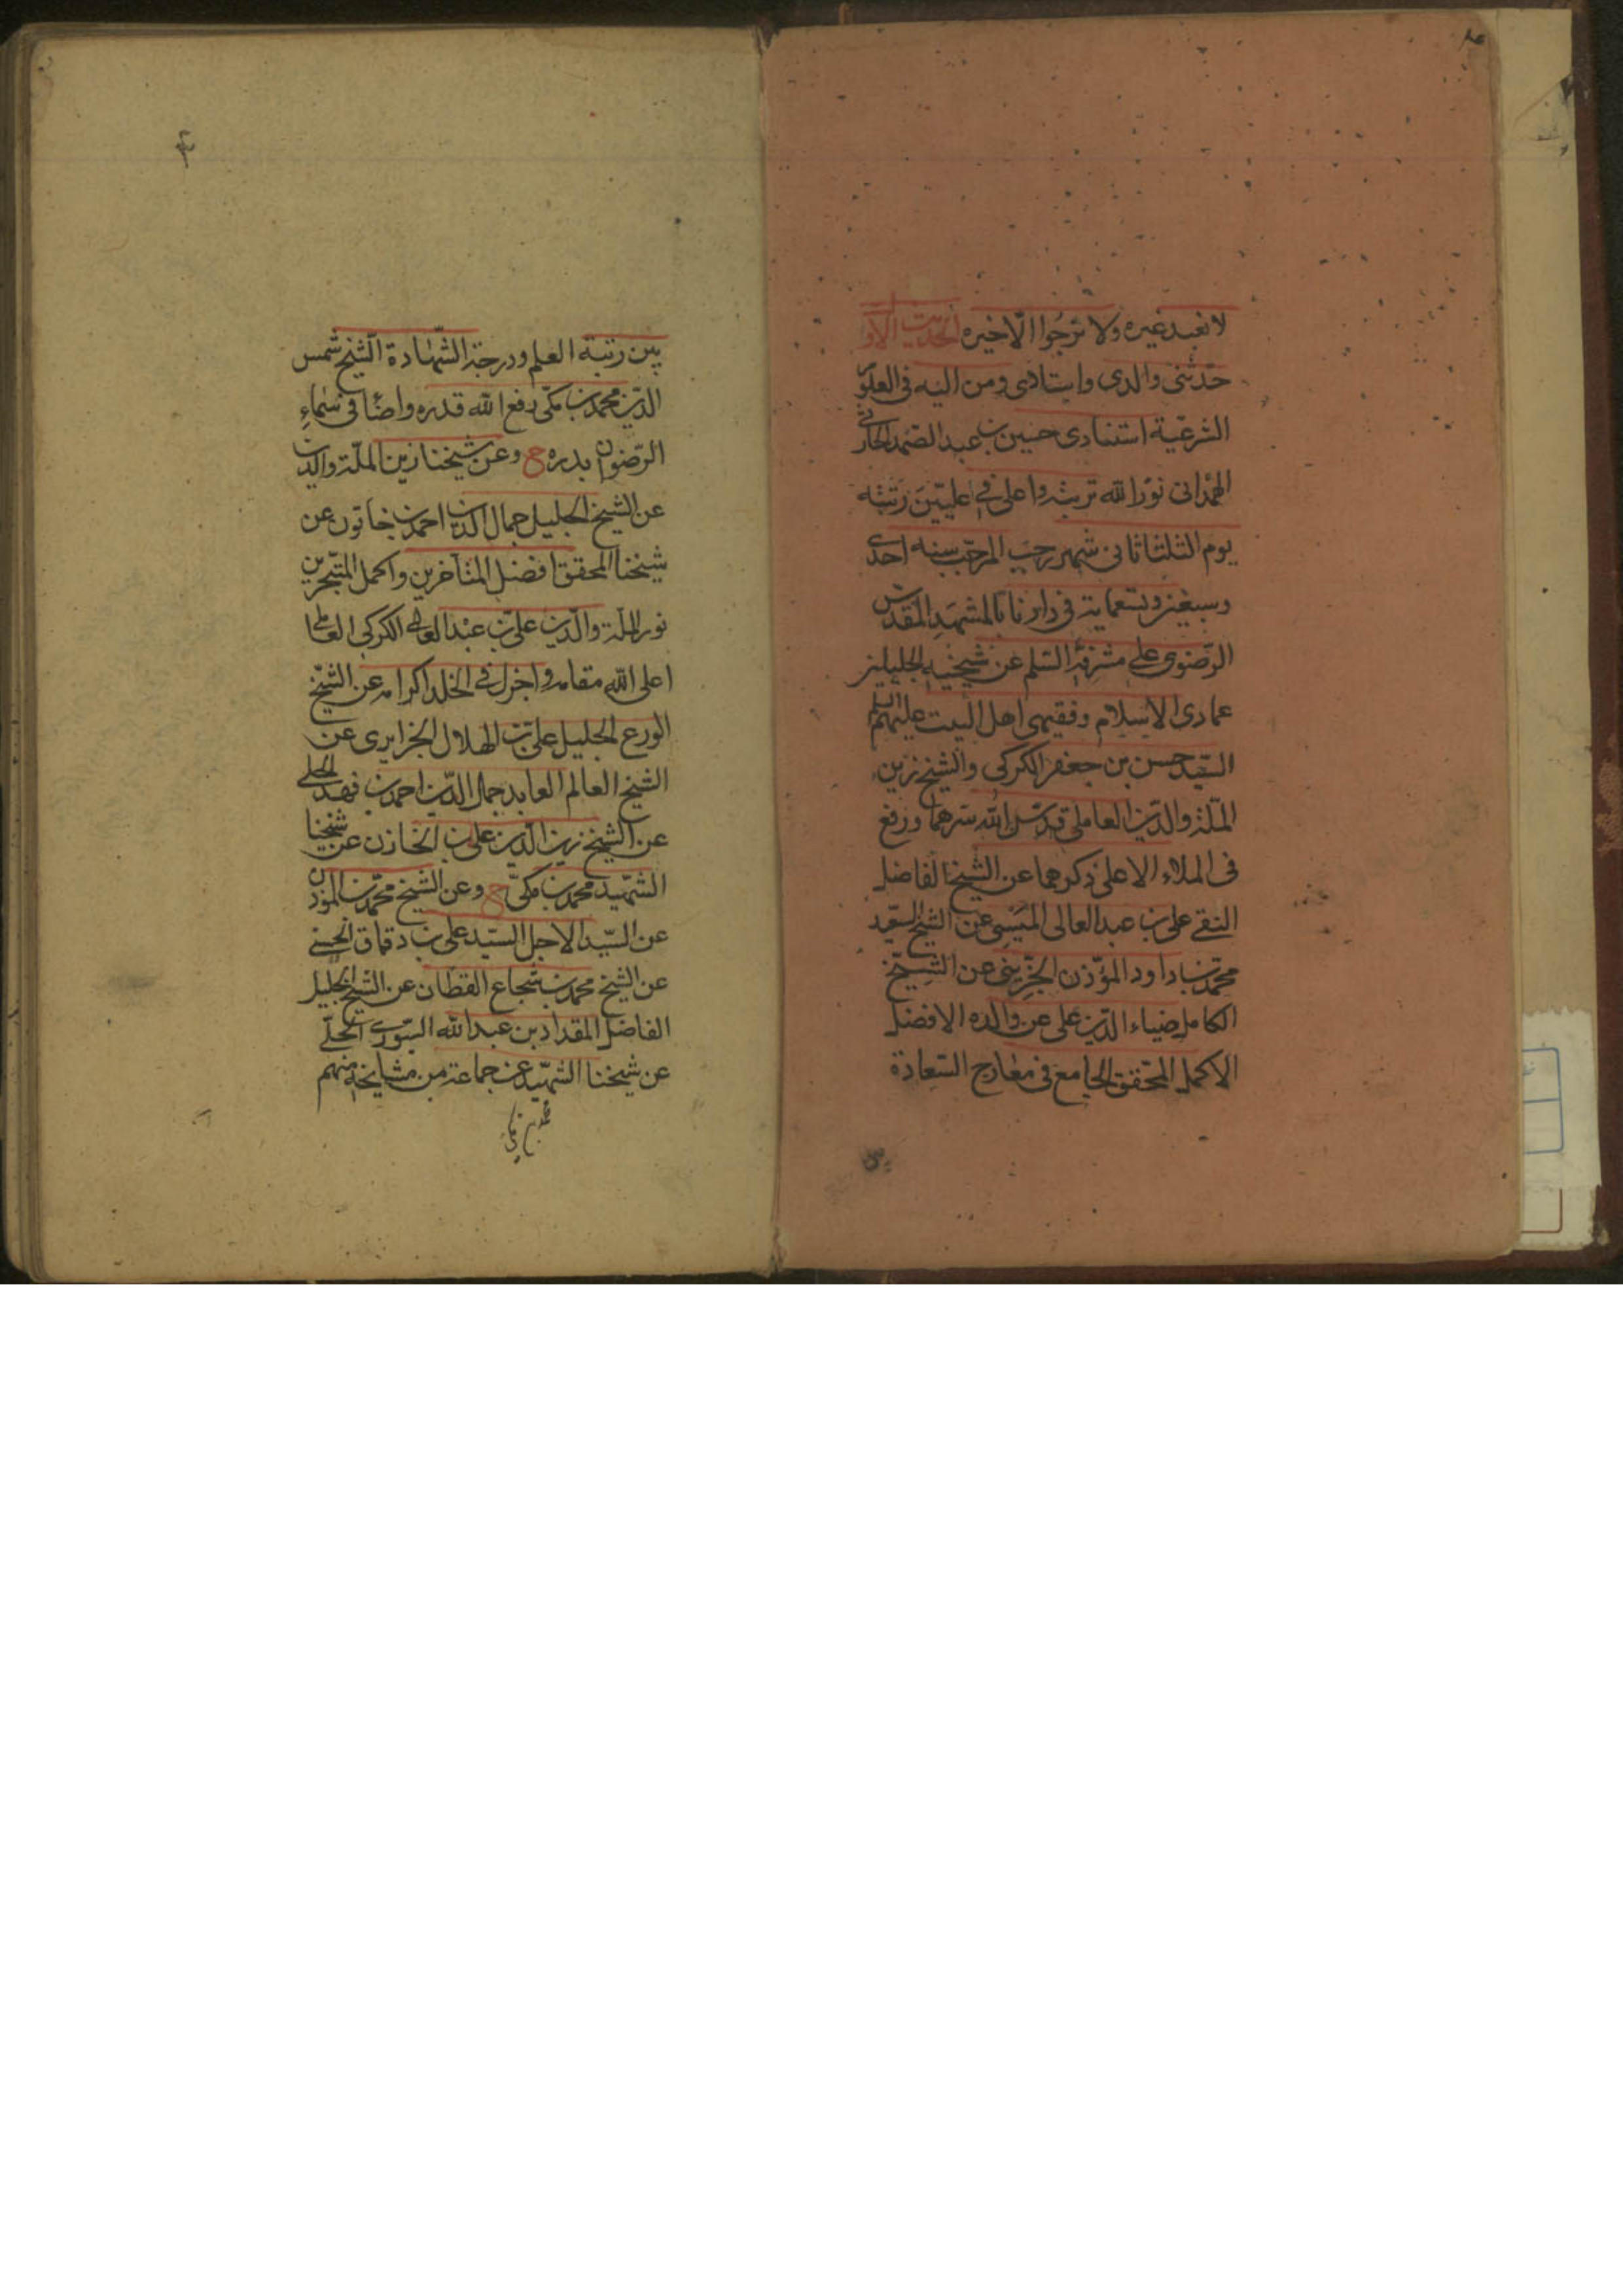 لا نعبد غيره ولا نرجوا الا خيره الحديث الاول
حدثنى والدى واستادى ومن اليه فى العلوم
الشرعية استنادى حسين بن عبد الصمد الحارثى
الهمدانى نور الله تربته واعلى فى عليين رتبته
يوم الثلثا ثانى شهر رجب المرجب سنه احدى
وسبعين وتسعمايه فى دارنا بالمشهد المقدس
الرضوى على مشرفه السلم عن شيخيه الجليلين
عمادى الاسلام وفقيهى اهل البيت عليهم السلم
السيد حسن بن جعفر الكركى والشيخ زين
الملة والدين العاملى قدس الله سرهما ورفع
فى الملاء الاعلى ذكرهما عن الشيخ الفاضل
التقى على بن عبد العالى الميسى عن الشيخ السعيد
محمد بن داود المؤذن الجزينى عن الشيخ
الكامل ضياء الدين على عن والده الافضل
الاكمل المحقق الجامع فى معارج السعادة
بين رتبة العلم ودرجة الشهادة الشيخ شمس
الدين محمد بن مكى رفع الله قدره واضأ فى سماء
الرضوان بدره ح وعن شيخنا زين الملة والدين
عن الشيخ الجليل جمال الدين احمد بن خاتون عن
شيخنا المحقق افضل المتأخرين واكمل المتبحرين
نور الملة والدين على بن عبد العالى الكركى العاملى
اعلى الله مقامه واجزل فى الخلد اكرامه عن الشيخ
الورع الجليل على بن الهلال الجزايرى عن
الشيخ العالم العابد جمال الدين احمد بن فهد الحلى
عن الشيخ زين الدين على بن الخازن عن شيخنا
الشهيد محمد بن مكى ح وعن الشيخ محمد بن المؤذن
عن السيد الاجل السيد على بن دقماق الحسنى
عن الشيخ محمد بن شجاع القطان عن الشيخ الجليل
الفاضل المقداد بن عبد الله السورى الحلى
عن شيخنا الشهيد عن جماعة من مشايخه منهم